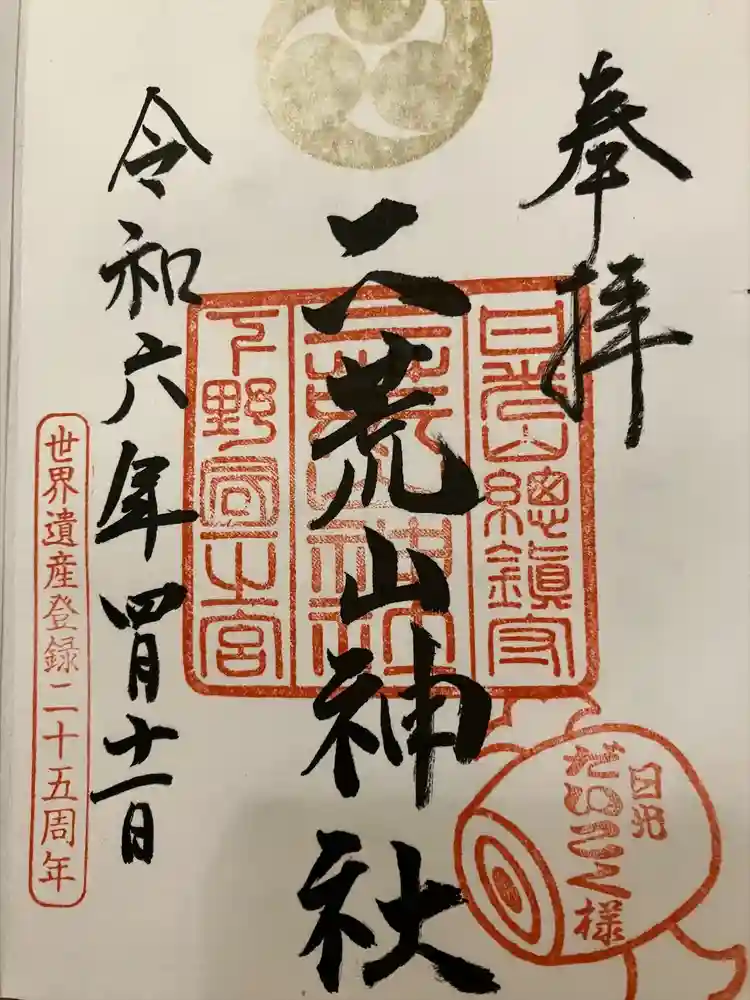 奉拝
日光山總鎮守
二荒山神社
二荒山神社
下野国一之宮
令和六年四月十一日
世界遺産登録二十五周年
日光
だいこく様